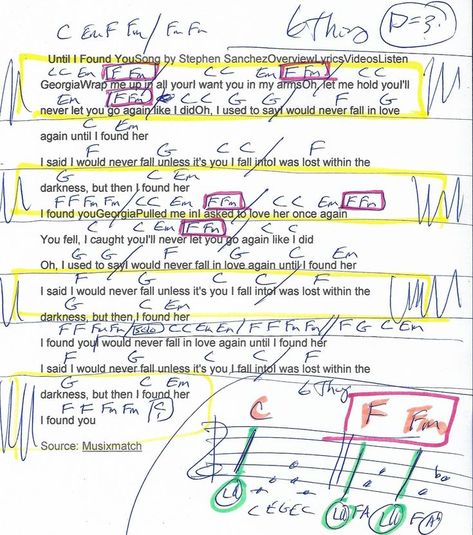 C Em F Fm / Fm Fm
6 Thuy
P=3.
Until I Found YouSong by Stephen SanchezOverviewLyricsVideosListen
C C Em F Fm / C C Em F Fm / C C
GeorgiaWrap me up in all yourI want you in my armsOh, let me hold youI'll
Em F Fm / C C G G / F G
never let you go again like I didOh, I used to sayI would never fall in love
C Em
again until I found her
F G C C / F
I said I would never fall unless it's you I fall intoI was lost within the
G C Em
darkness, but then I found her
F F Fm Fm / C C Em F Fm / C C Em F Fm
I found youGeorgiaPulled me inI asked to love her once again
C C Em F Fm / C C
You fell, I caught youI'll never let you go again like I did
G G / F G C Em
Oh, I used to sayI would never fall in love again until I found her
F G C C / F
I said I would never fall unless it's you I fall intoI was lost within the
G C Em
darkness, but then I found her
F F Fm Fm / Solo / C C Em Em / F F Fm Fm // F G C Em
I found youI would never fall in love again until I found her
F G C C F
I said I would never fall unless it's you I fall intoI was lost within the
G C Em
darkness, but then I found her
F F Fm Fm C
I found you
6 Thuy
Source: Musixmatch
C F Fm
La C E G E C La F A La F A